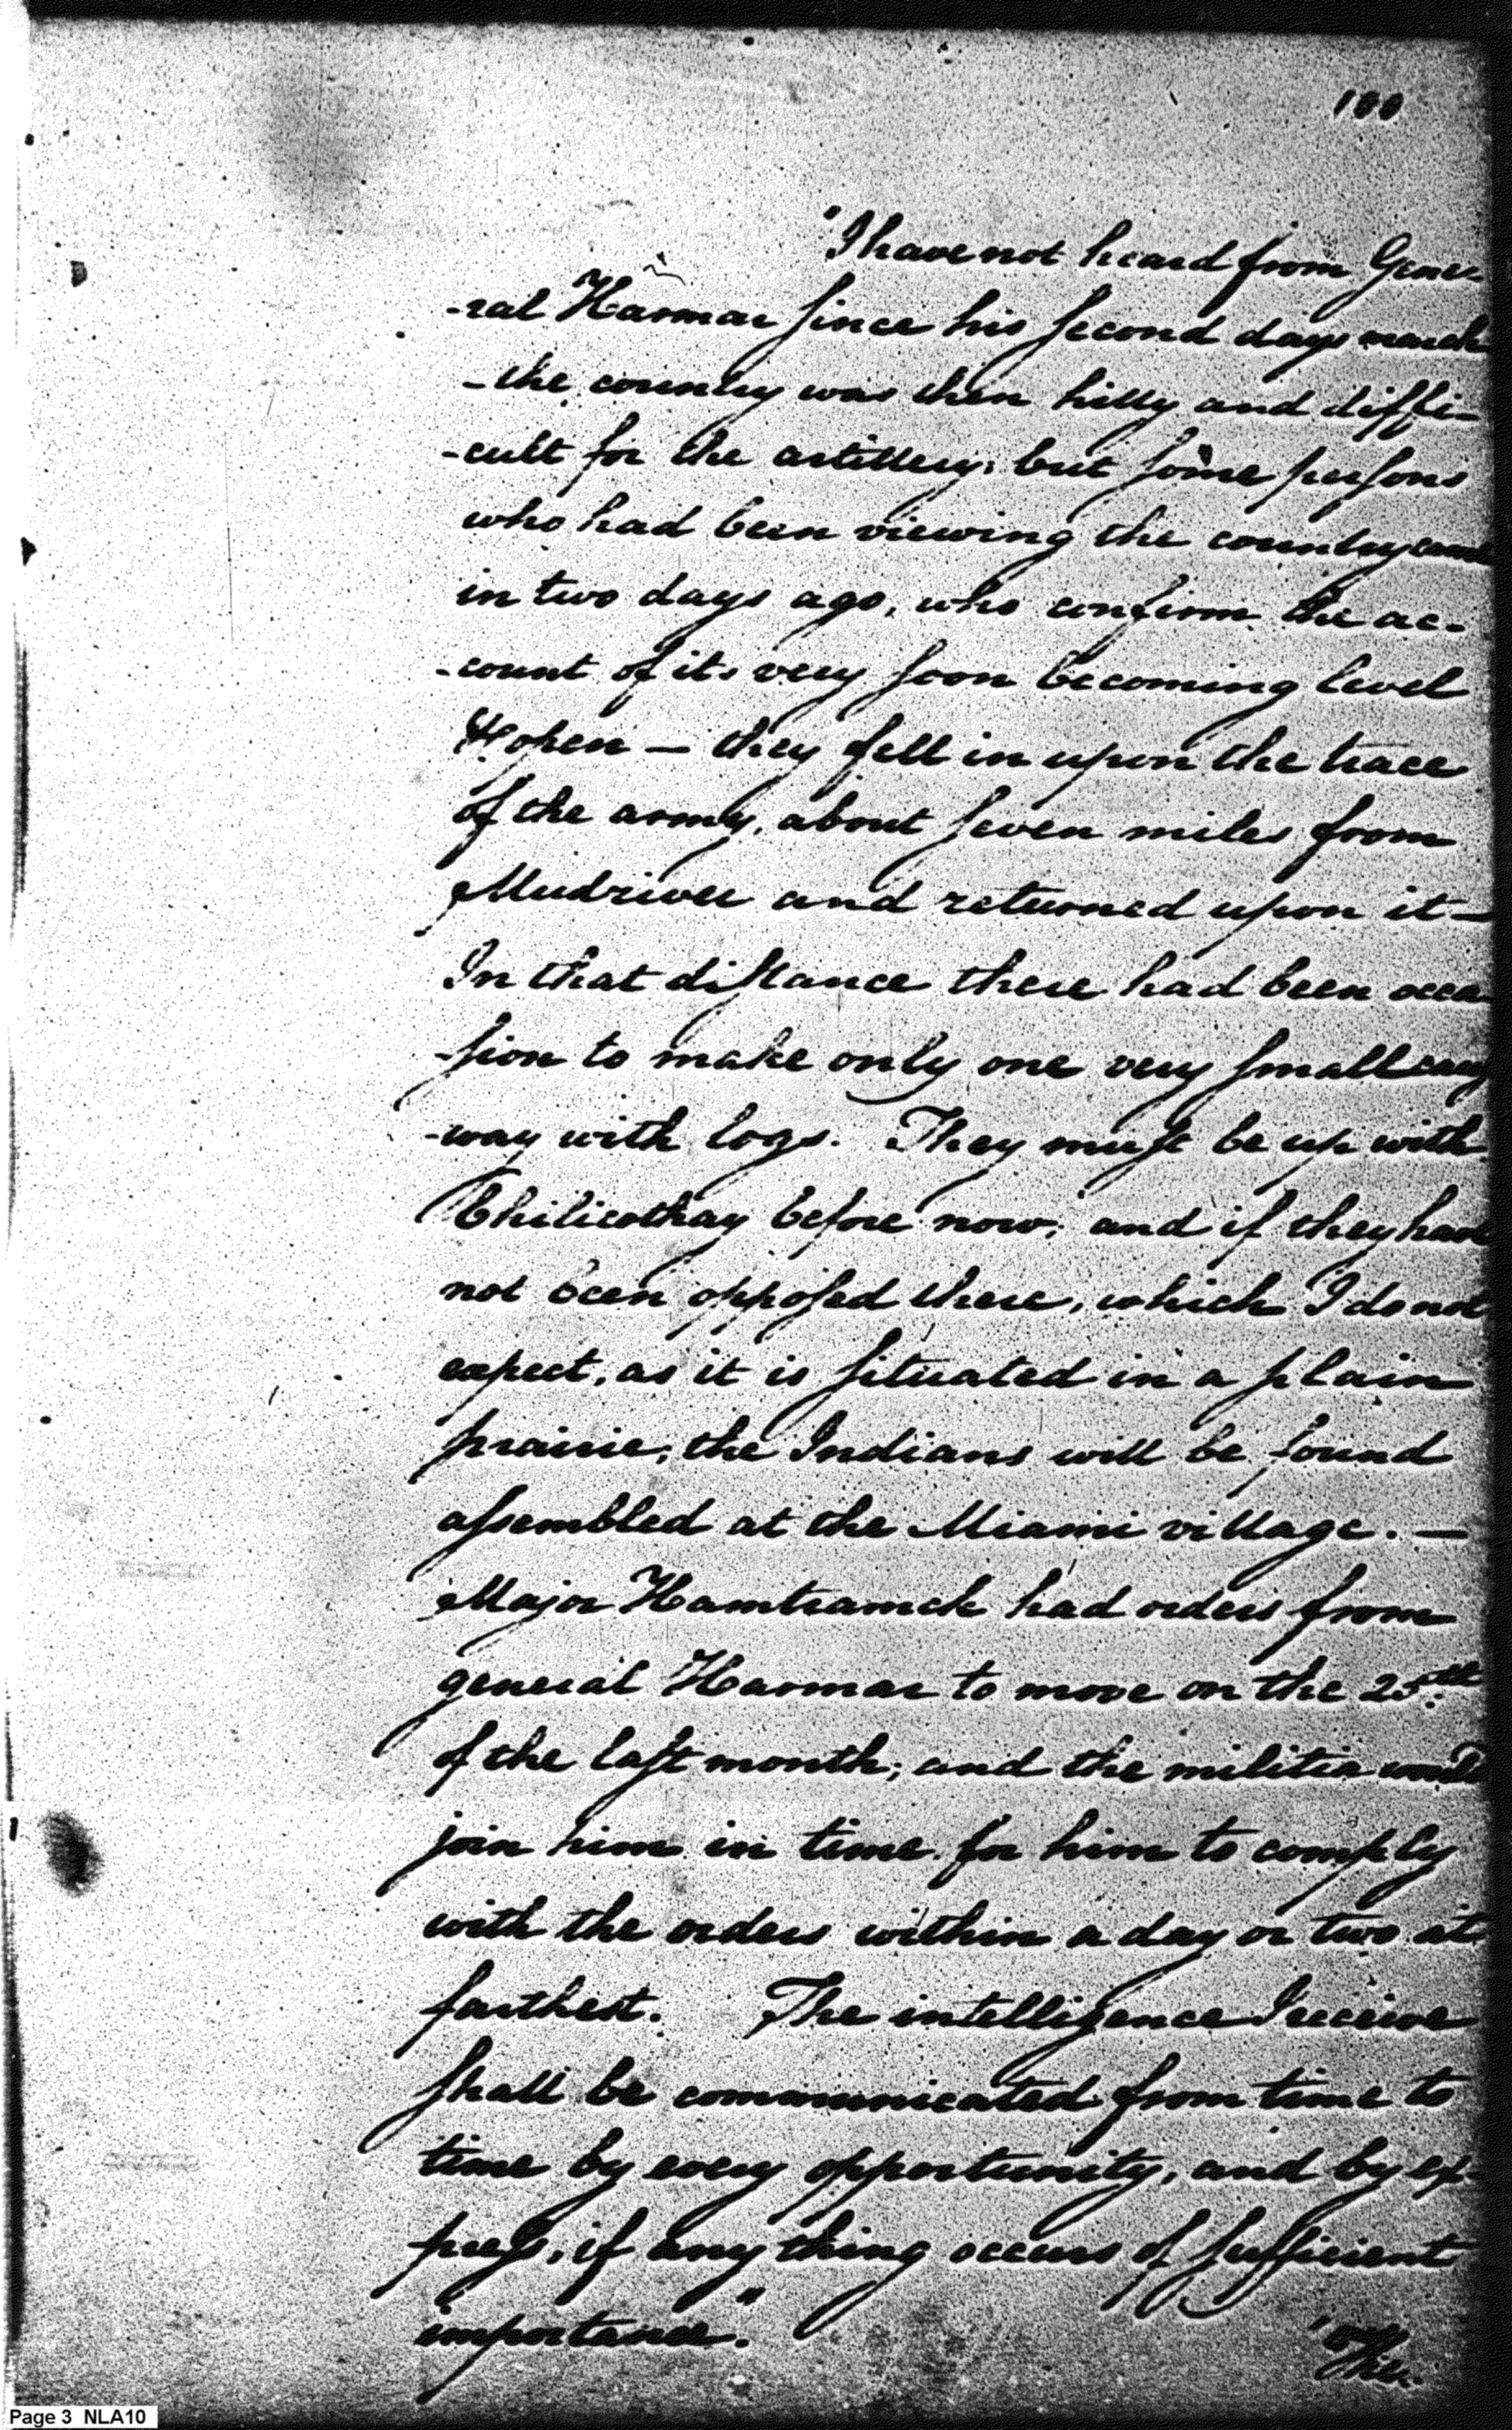 100
"I have not heard from Gene-
-ral Harmar since his second days march
- the country was then hilly and diffi-
-cult for the artillery; but some persons
who had been viewing the country came
in two days ago, who confirm the ac-
-count of its very soon becoming level
& open — they fell in upon the trace
of the army, about seven miles from
Mudriver and returned upon it —
In that distance there had been occa
-sion to make only one very small caus
-way with logs. They must be up with
Chilicothay before now; and if they have
not been opposed there, which I do not
expect, as it is situated in a plain
prairie; the Indians will be found
assembled at the Miami village. —
Major Hamtramck had orders from
general Harmar to move on the 25th
of the last month; and the militia would
join him in time for him to comply
with the orders within a day or two at
farthest. The intelligence I receive
shall be communicated from time to
time by every opportunity, and by ex-
press, if any thing occurs of sufficient
importance."
"The
Page 3 NLA10